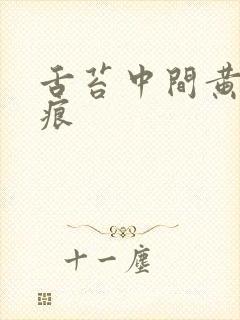 舌苔中間黃
痕
十一塵